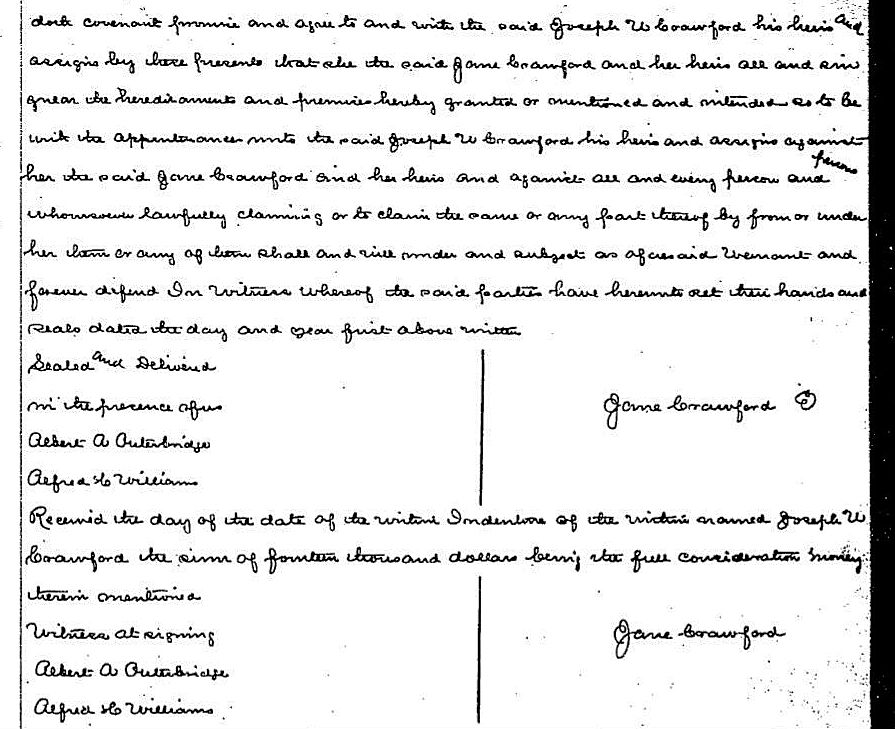 doth covenant promise and agree to and with the said Joseph W Crawford his heirs and
assigns by these presents that she the said Jane Crawford and her heirs all and sin
gular the hereditaments and premises hereby granted or mentioned and intended so to be
with the appurtenances unto the said Joseph W Crawford his heirs and assigns against
her the said Jane Crawford and her heirs and against all and every person and persons
whomsoever lawfully claiming or to claim the same or any part thereof by from or under
her them or any of them shall and will under and subject as aforesaid Warrant and
forever defend In Witness Whereof the said parties have hereunto set their hands and
seals dated the day and year first above written
Sealed and Delivered
in the presence of us
Jane Crawford
Albert A Outerbridge
Alfred H Williams
Received the day of the date of the within Indenture of the within named Joseph W
Crawford the sum of fourteen thousand dollars being the full consideration money
therein mentioned
Witness at signing
Jane Crawford
Albert A Outerbridge
Alfred H Williams